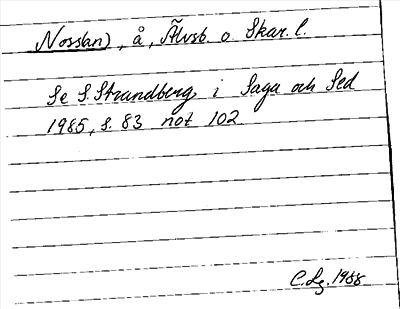 Nossan), å, Älvsb o Skar. l.
Se S. Strandberg i Saga och Sed
1985, s. 83 not 102
C.Lg. 1988